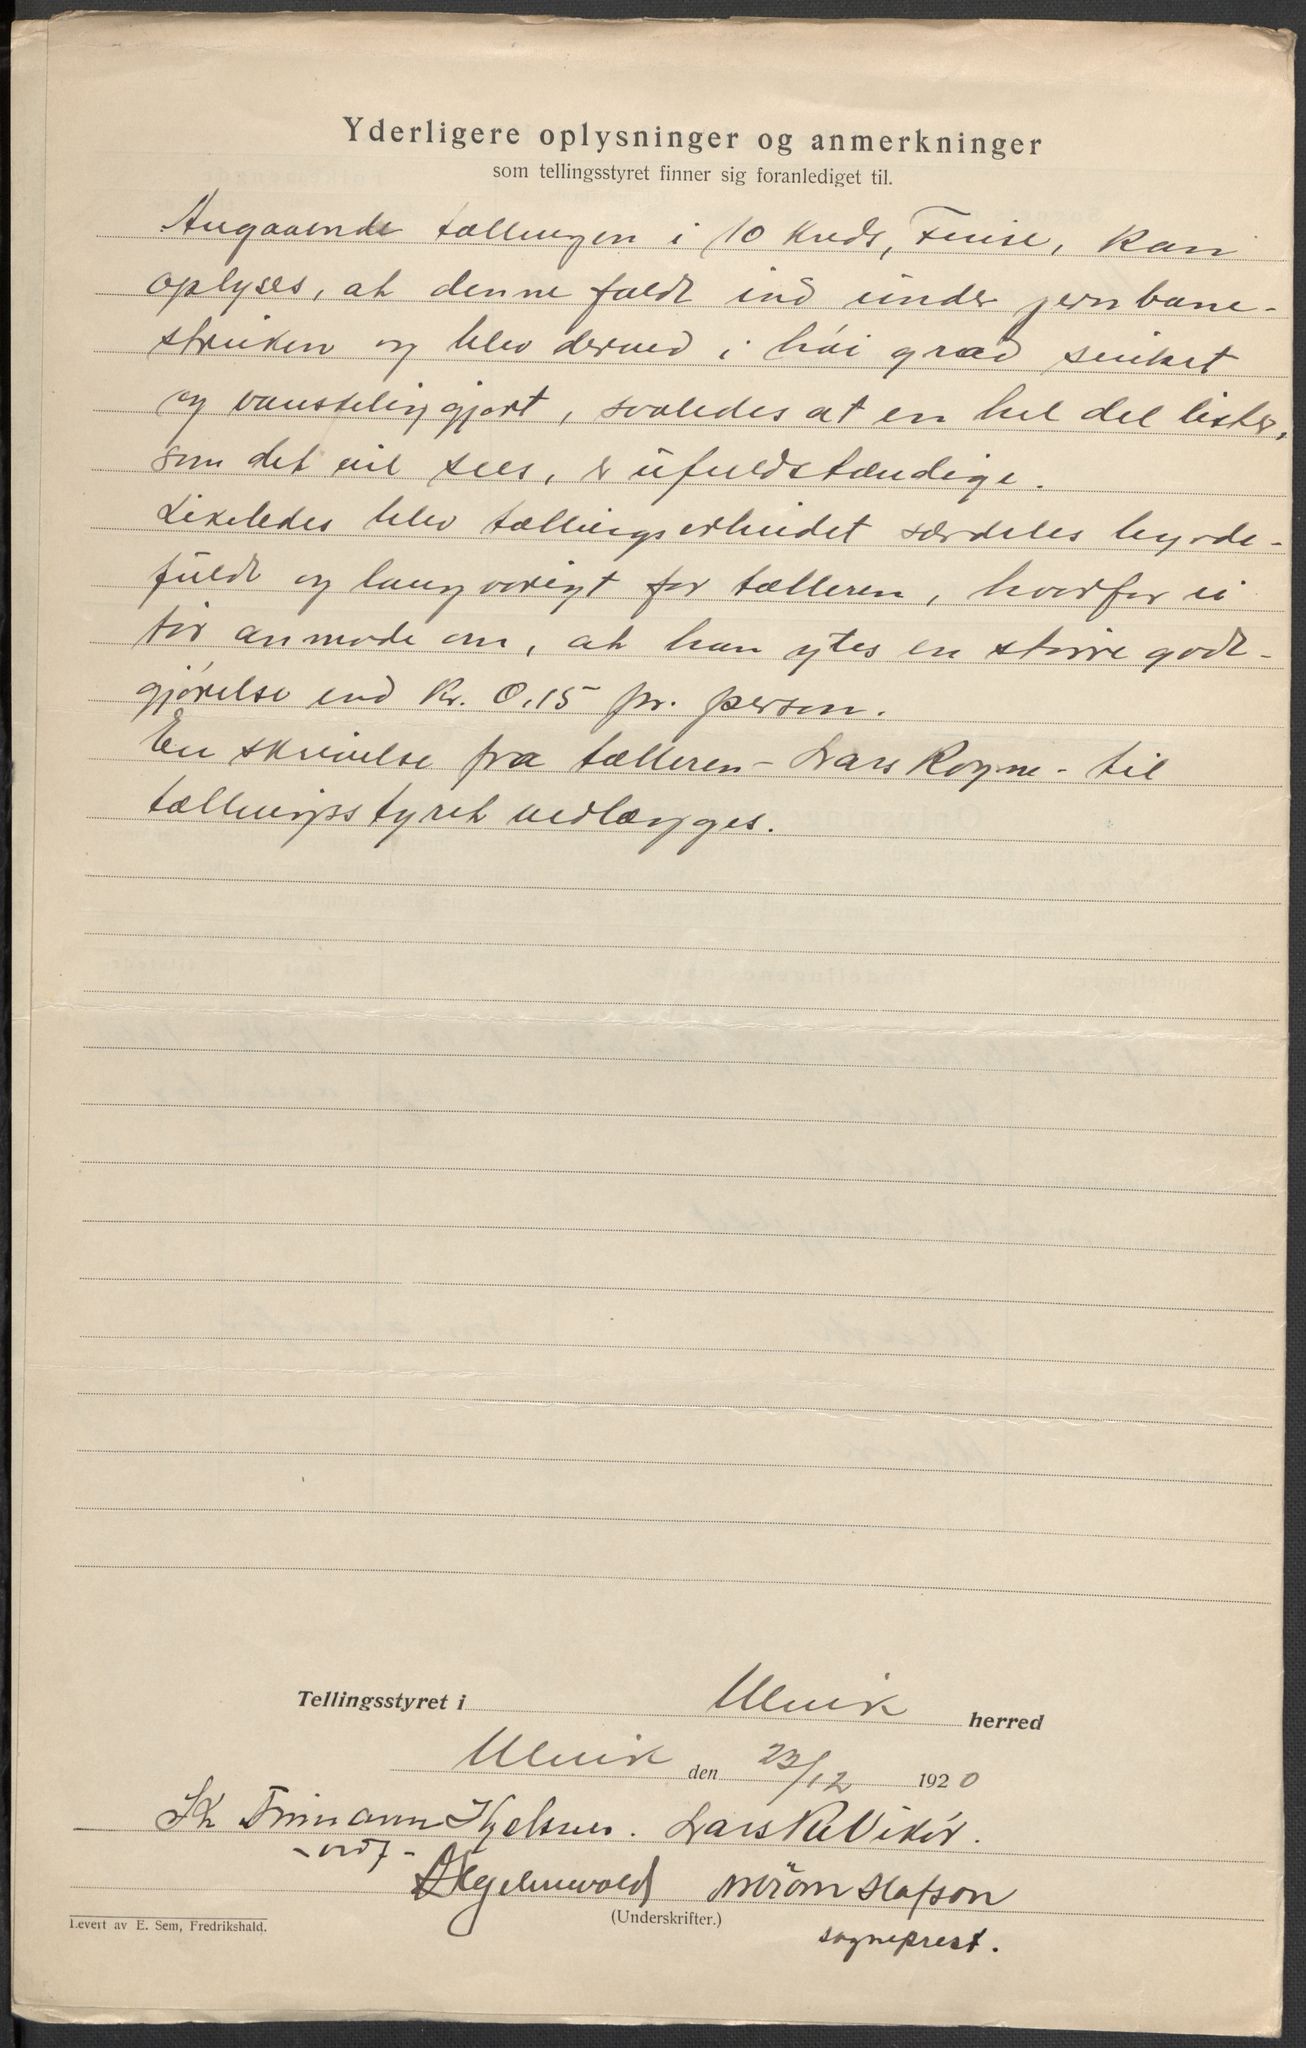 Yderligere oplysninger og anmerkninger
som tellingsstyret finner sig foranlediget til.
Angaaende tællingen i 10 kreds, Finse, kan
oplyses, at denne faldt ind under jernbane-
streiken og blev derved i høi grad sinket
og vanskeliggjort, saaledes at en hel del lister,
som det vil sees, er ufuldstændige.
Likeledes blev tællingsarbeidet særdeles byrde-
fuldt og langvarigt for tælleren, hvorfor vi
tør anmode om, at han ytes en større godt-
gjørelse end kr. 0.15 pr. person.
En skrivelse fra tælleren - Lars Rogne - til
tællingsstyret vedlægges.
Tellingsstyret i Ulvik herred
Ulvik den 23/12 1920
Lars Vikør.
- ordf -
Olafson
(Underskrifter.)
sogneprest.
Levert av E. Sem, Fredrikshald.